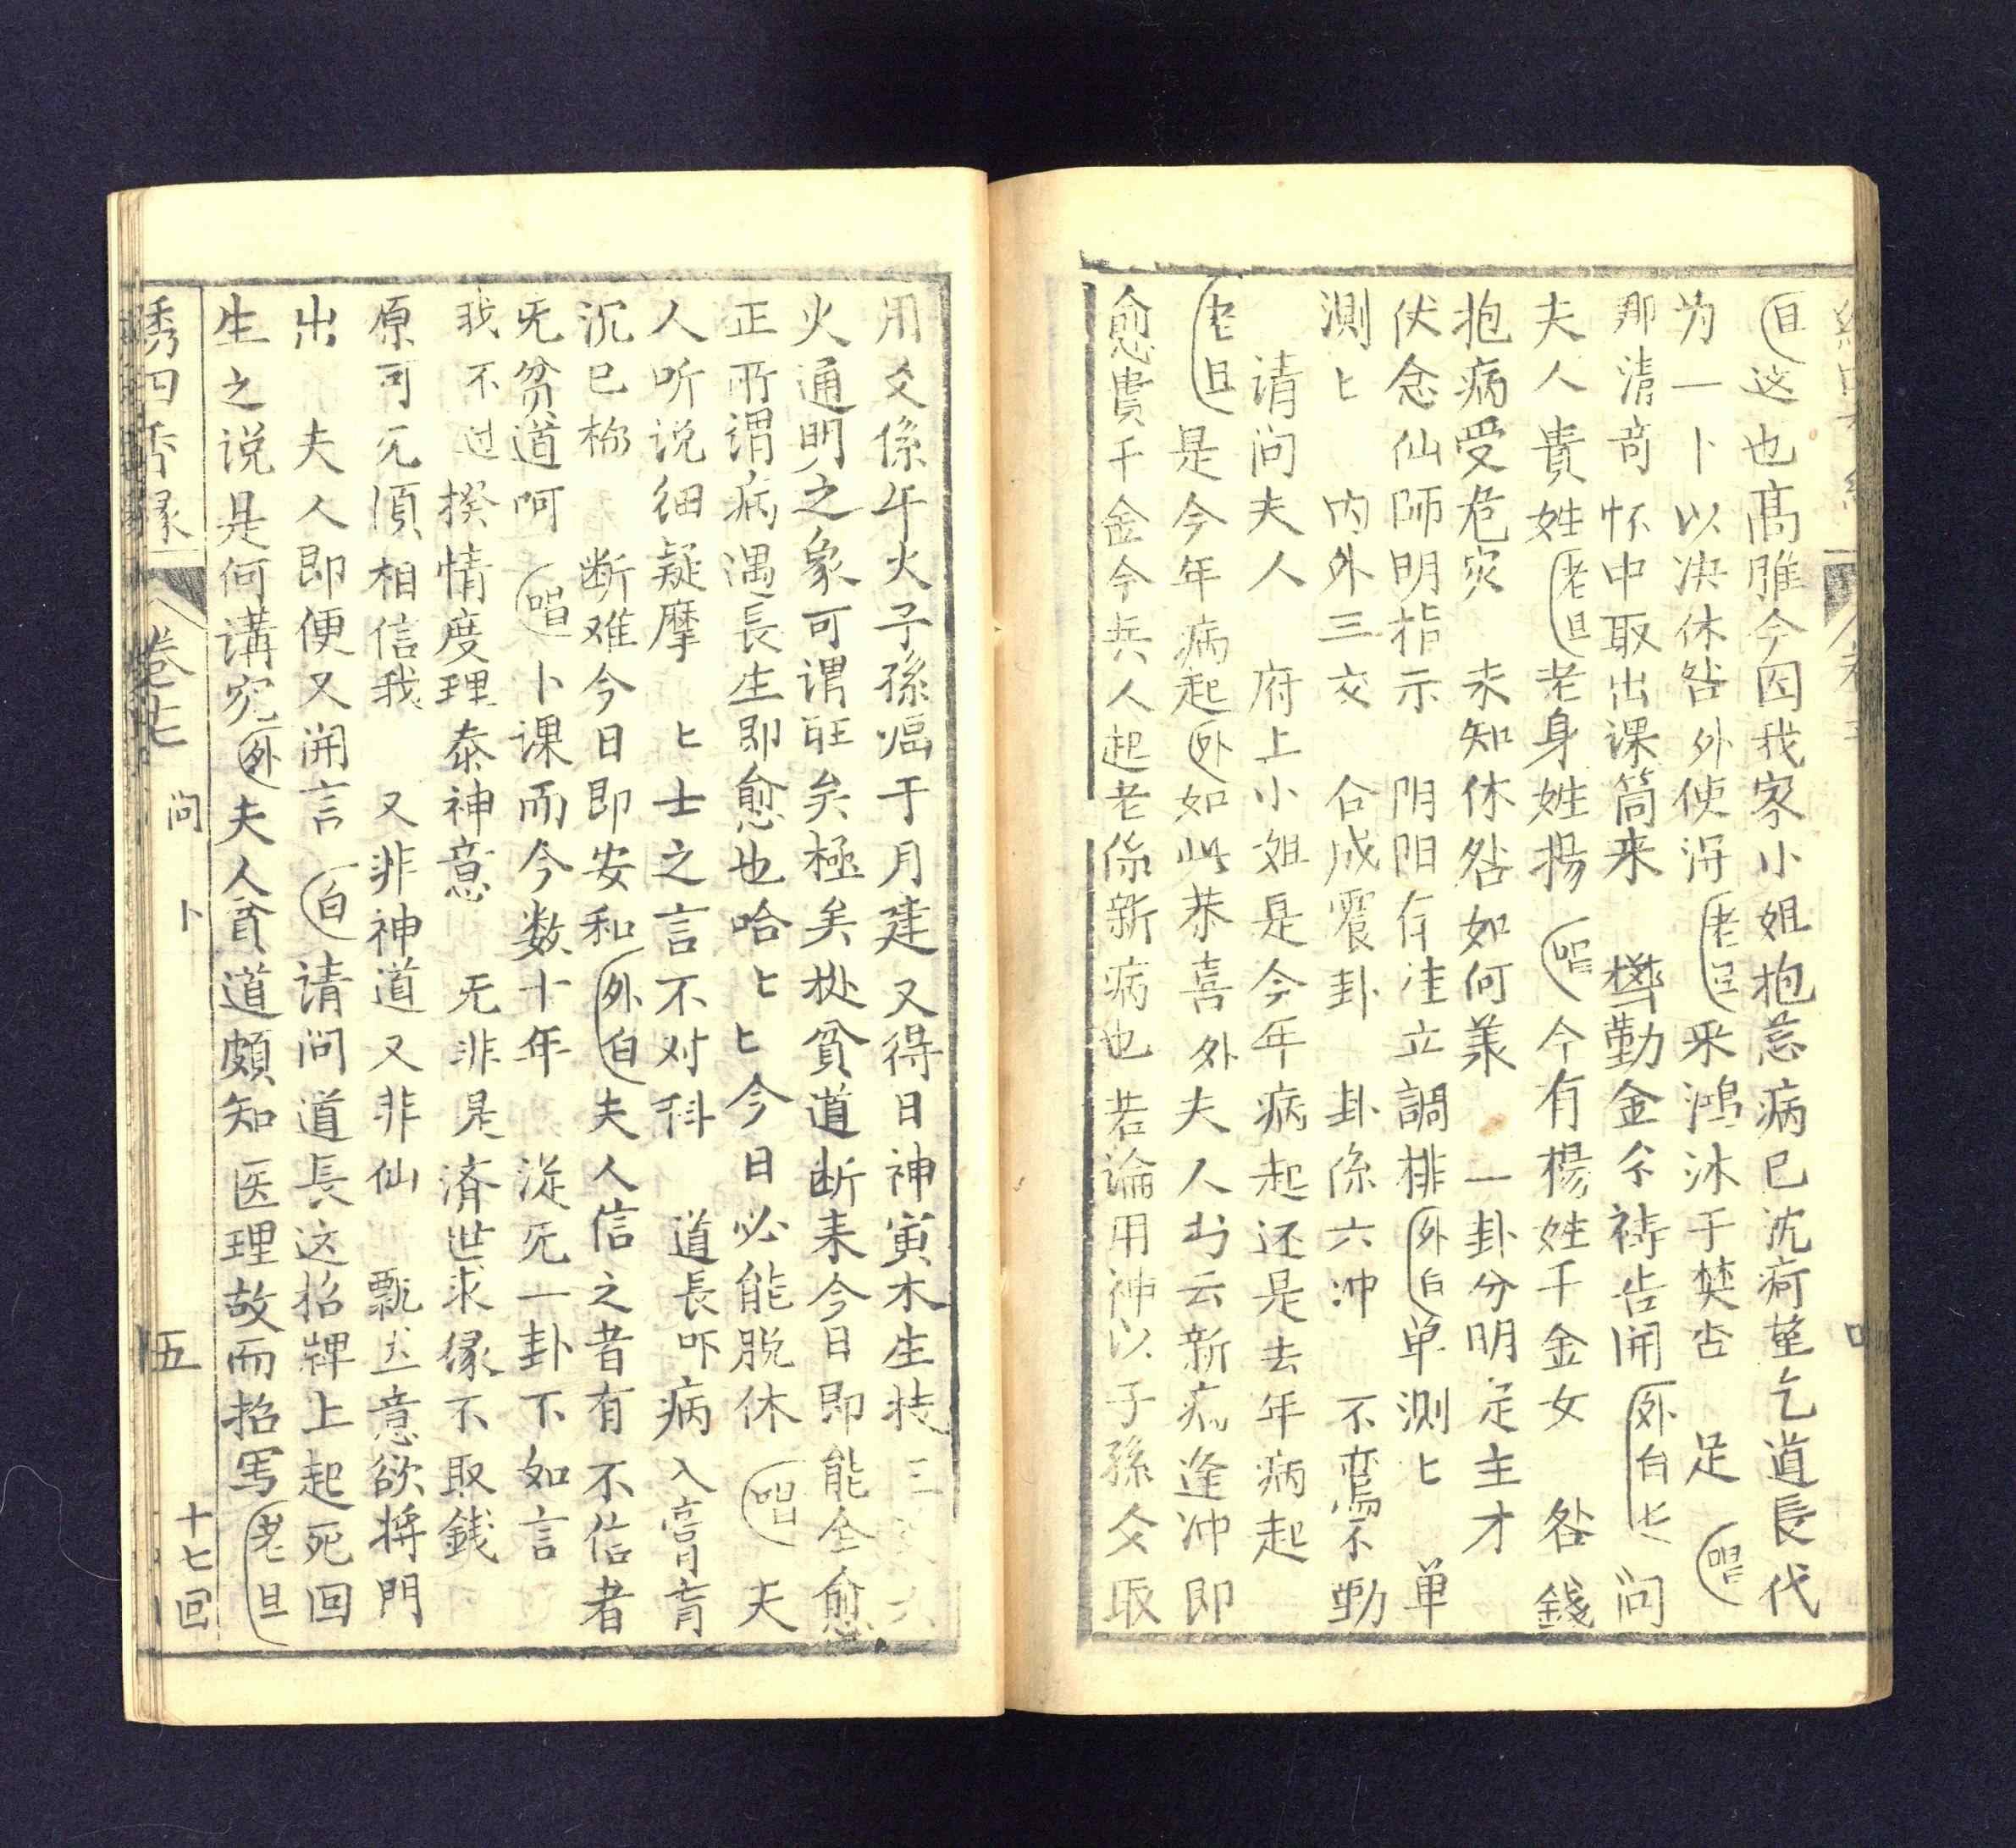 旦这也高雅今因我家小姐抱恙病已沈疴望乞道長代
为一卜以决休咎外使淂老旦采鸿沐于焚杏足唱
那清奇怀中取出课筒来樊勤金介祷告開外白匕问
夫人貴姓老旦老身姓楊唱今有楊姓千金女咎錢
抱病受危災未知休咎如何業一卦分明定主才
伏念仙师明指示阴阳存洼立調排外白单测匕单
測匕内外三爻合成震卦卦係六冲不鸾不動
请问夫人府上小姐是今年病起还是去年病起
老旦是今年病起外如此恭喜外夫人书云新病逢冲即
愈貴千金今兵人起老係新病也若論用神以子孫爻取
用爻係午火子孫临于月建又得日神寅木生扶三
火通明之象可谓旺矣極矣梑貧道断来今日即能全愈
正所谓病遇長生即愈也哈匕匕今日必能脱体唱夫
人听说细疑摩匕士之言不对科道長吓病入膏肓
沉已极断难今日即安和外白夫人信之者有不信者
旡贫道呵唱卜课而今数十年從旡一卦不如言
我不过揆情度理泰神意旡非是済世求缘不取銭
原可旡須相信我又非神道又非仙意欲将門
出夫人即便又開言白请问道長这招牌上起死回
生之说是何講究外夫人貧道頗知医理故而招写老旦
绣四香緣
卷七
问卜
五
十七回